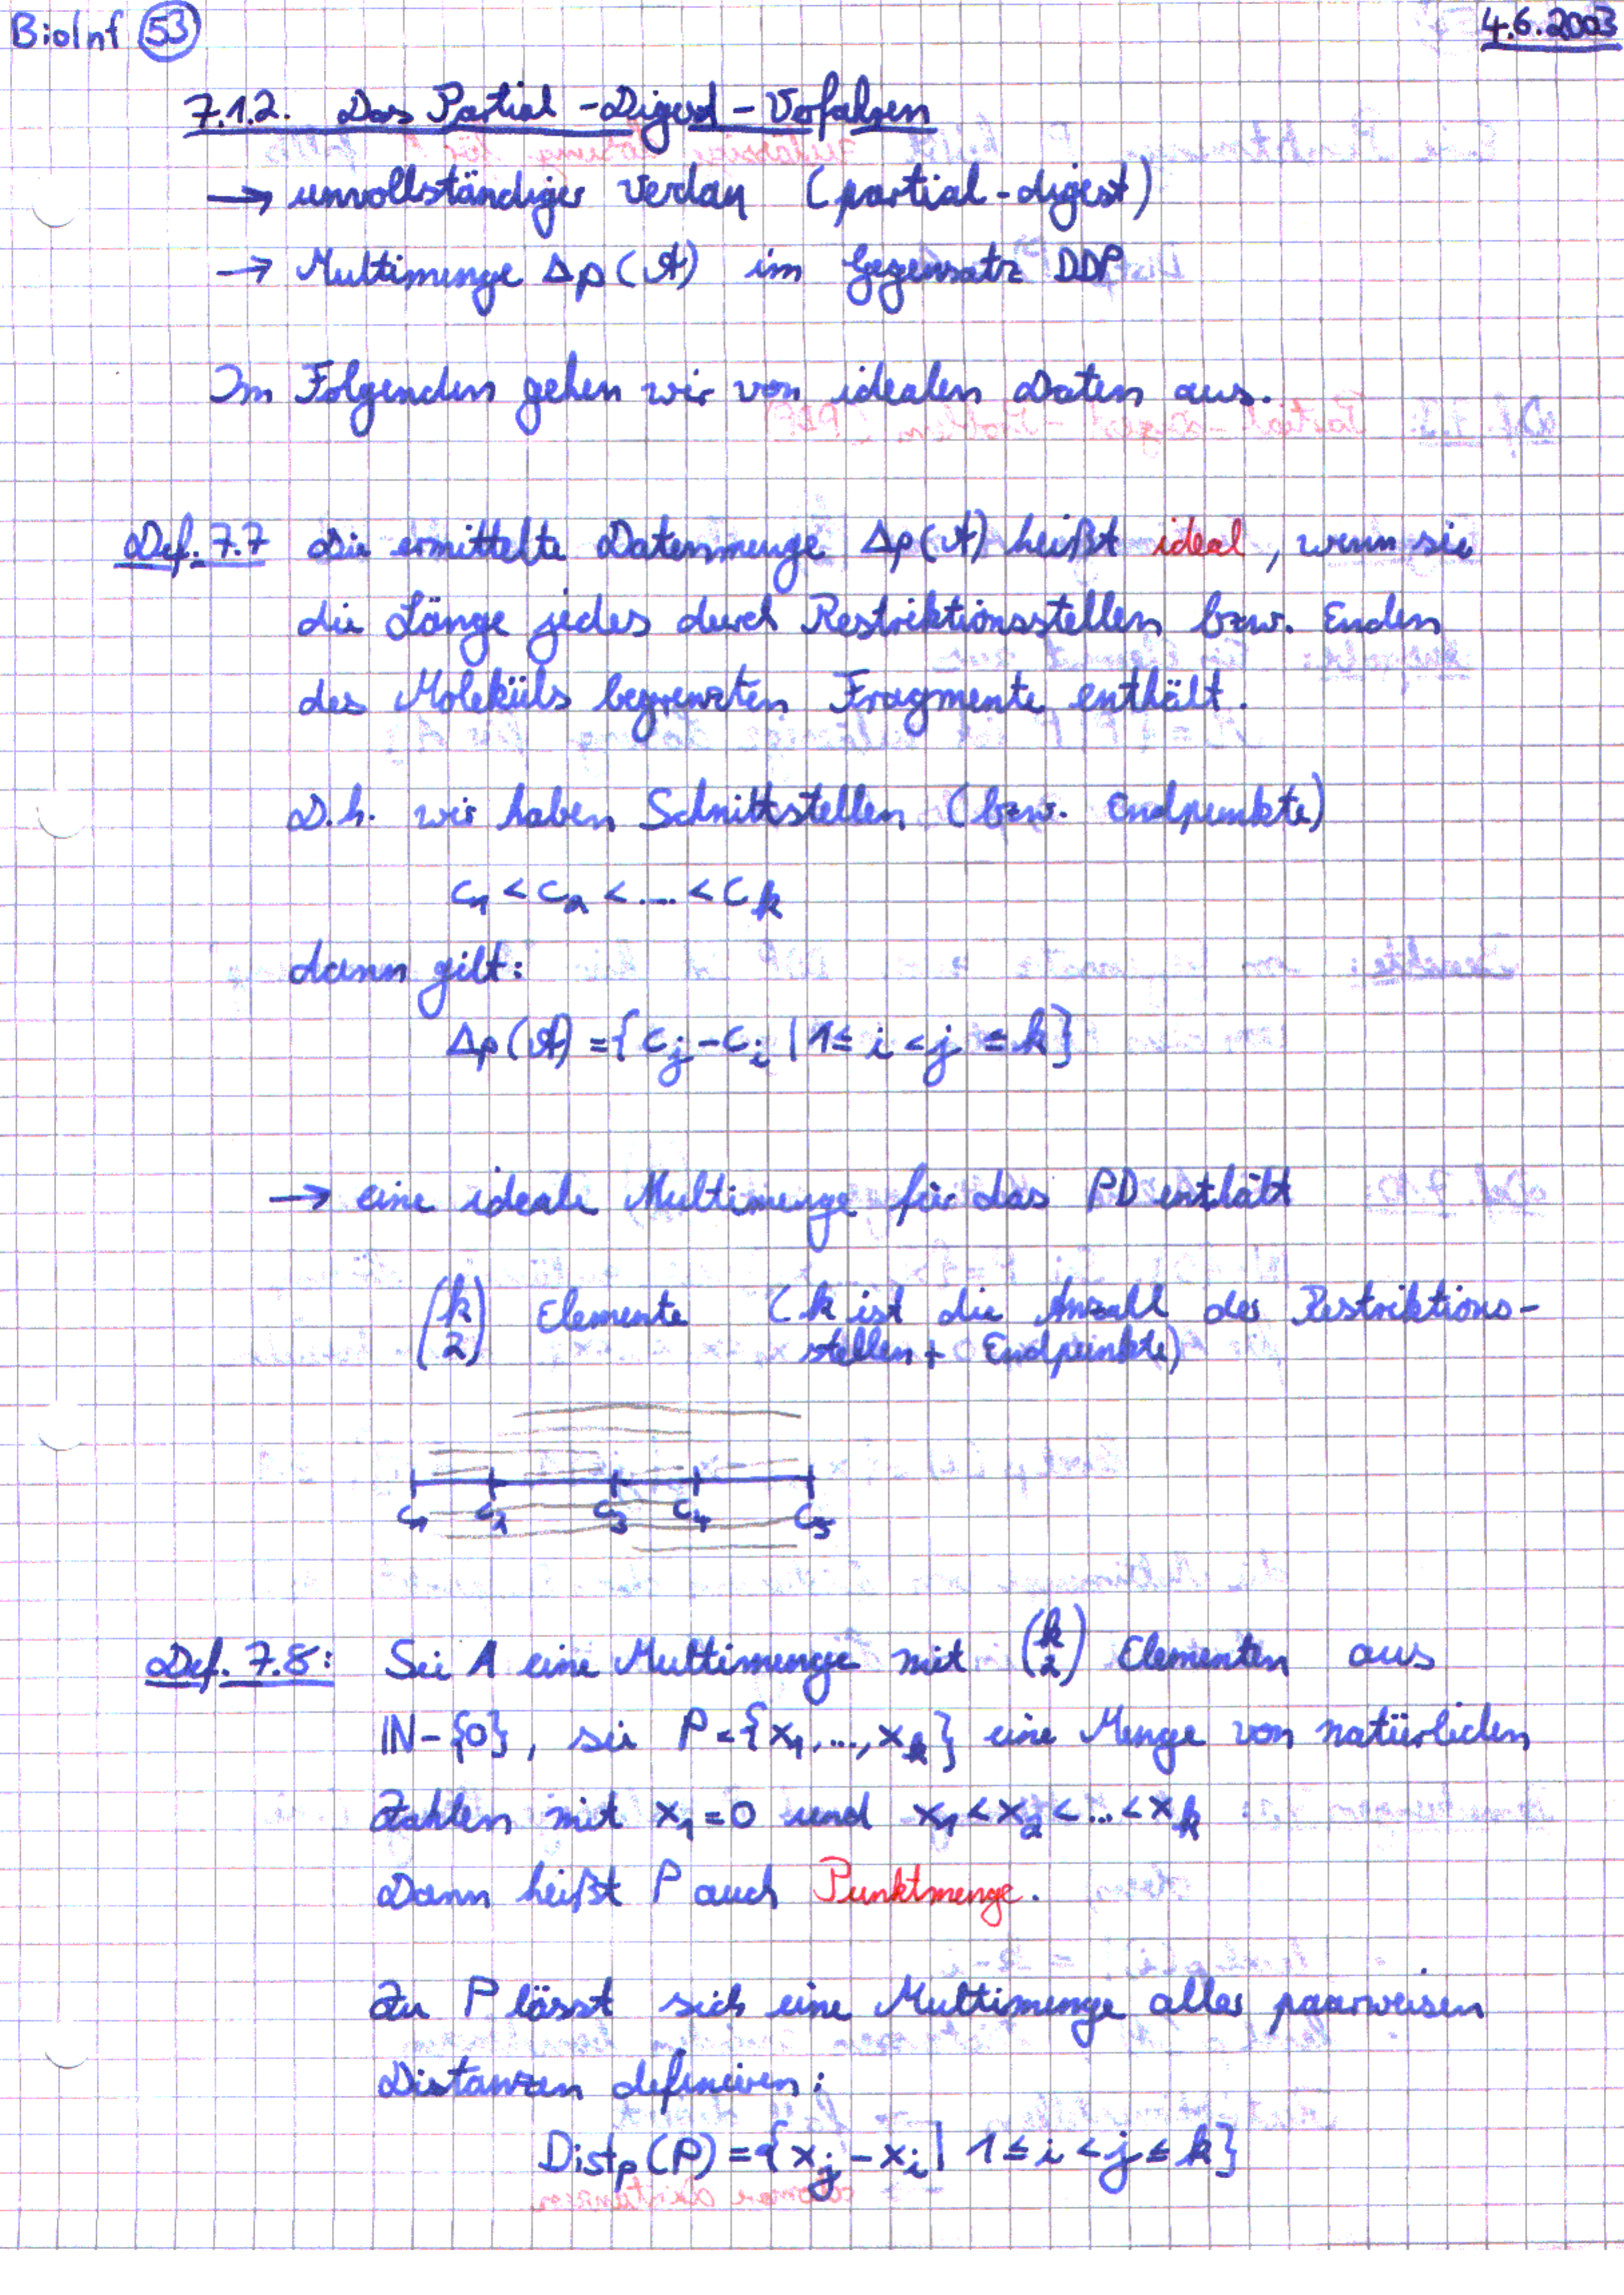 BioInf 53
4.6.2003
7.1.2. Das Partial-Digest-Verfahren
→ unvollständiger Verdau (partial-digest)
→ Multimenge Δp(A) im Gegensatz DDP
Im Folgenden gehen wir von idealen Daten aus.
Def. 7.7 Die ermittelte Datenmenge Δp(A) heißt ideal, wenn sie
die Länge jedes durch Restriktionsstellen bzw. Enden
des Moleküls begrenzten Fragmente enthält.
D.h. wir haben Schnittstellen (bzw. Endpunkte)
c₁ < c₂ < .... < c_k
dann gilt:
Δp(A) = {c_j - c_i | 1 ≤ i < j ≤ k}
→ eine ideale Multimenge für das PD enthält
(k 2) Elemente (k ist die Anzahl der Restriktions-
stellen + Endpunkte)
c₁ c₂ c₃ c₄ c₅
Def. 7.8: Sei A eine Multimenge mit (k 2) Elementen aus
IN-{0}, sei P={x₁,...,x_k} eine Menge von natürlichen
Zahlen mit x₁=0 und x₁<x₂<...<x_k
Dann heißt P auch Punktmenge.
Zu P lässt sich eine Multimenge aller paarweisen
Distanzen definieren:
Dist_p(P) = {x_j - x_i | 1 ≤ i < j ≤ k}